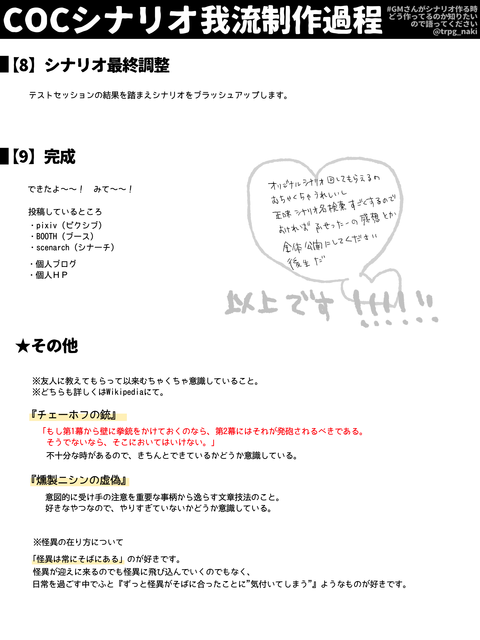 COCシナリオ我流制作過程
#GMさんがシナリオ作る時
どう作ってるのか知りたい
ので語ってください
@trpg_naki
【8】シナリオ最終調整
テストセッションの結果を踏まえシナリオをブラッシュアップします。
【9】完成
できたよ～～！　みて～～！
投稿しているところ
・pixiv（ピクシブ）
・BOOTH（ブース）
・scenarch（シナーチ）
・個人ブログ
・個人ＨＰ
オリジナルシナリオ回してもらえるの
めちゃくちゃうれしいし
正味シナリオ名検索すごくするので
よければ ふせったーの感想とか
全体公開にしてください
後生だ
以上です !!!!!!
★その他
※友人に教えてもらって以来むちゃくちゃ意識していること。
※どちらも詳しくはWikipediaにて。
『チェーホフの銃』
「もし第1幕から壁に拳銃をかけておくのなら、第2幕にはそれが発砲されるべきである。
そうでないなら、そこにおいてはいけない。」
不十分な時があるので、きちんとできているかどうか意識している。
『燻製ニシンの虚偽』
意図的に受け手の注意を重要な事柄から逸らす文章技法のこと。
好きなやつなので、やりすぎていないかどうか意識している。
※怪異の在り方について
「怪異は常にそばにある」のが好きです。
怪異が迎えに来るのでも怪異に飛び込んでいくのでもなく、
日常を過ごす中でふと『ずっと怪異がそばに合ったことに"気付いてしまう"』ようなものが好きです。